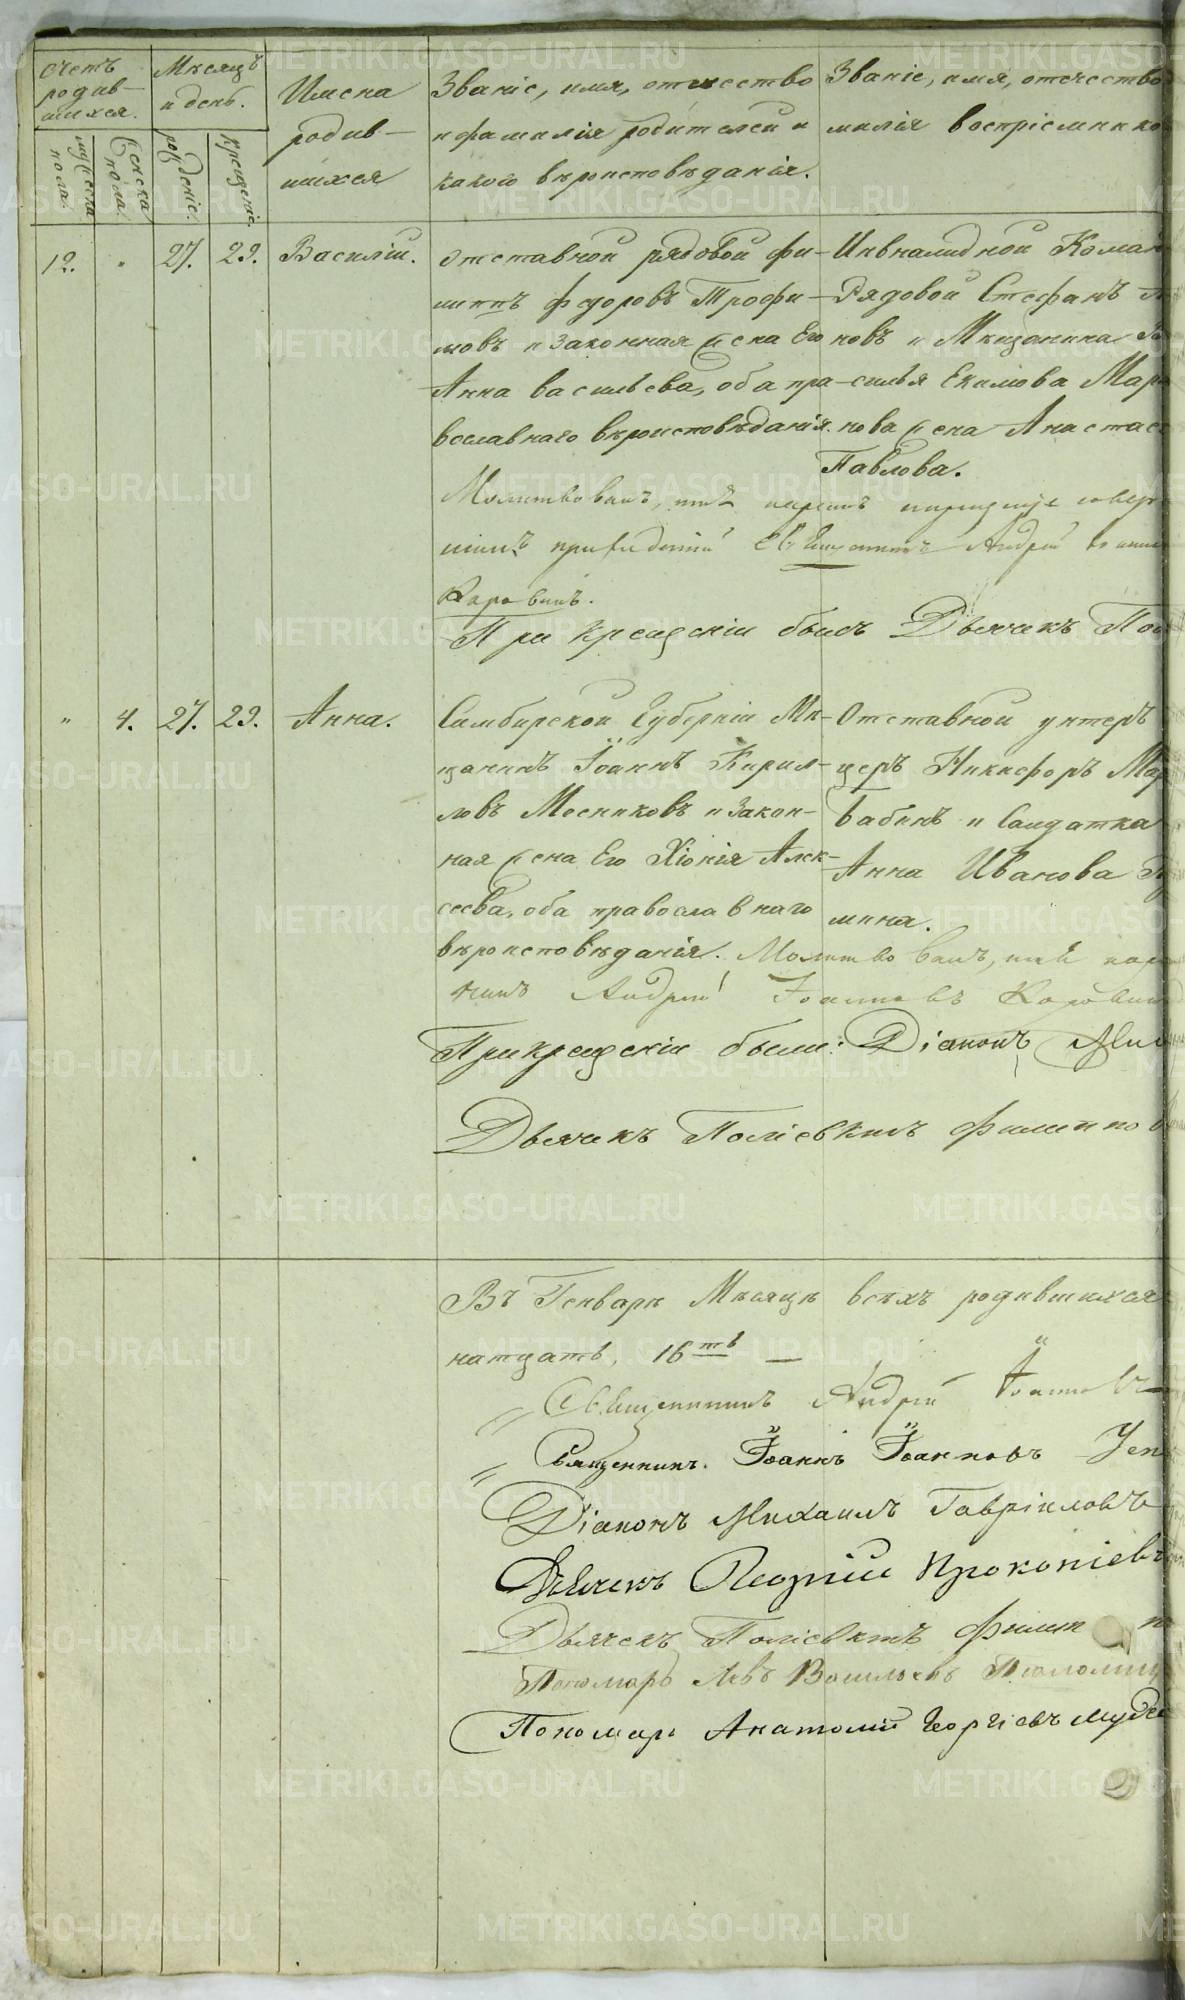 Счетъ родив-
шихся.
мужеска пола.
женска пола.
Мѣсяцъ
и день.
рожденіе.
крещеніе.
Имена
родив-
шихся
Званіе, имя, отчество
и фамилія родителей и
какого вѣроисповѣданія.
Званіе, имя, отчество
милія воспріемнико
12. " 27. 29. Василій.
отставной рядовой Фи-
липпъ Федоровъ Трофи-
мовъ и законная жена Его
Анна Васильева, оба пра-
вославнаго вѣроисповѣданія.
Инвалидной Коман
Рядовой Стефанъ
новъ и Мѣщанина
силья Екимова Мар
нова жена Анастас
Павлова.
Молитвовалъ, имя нарекъ и крещеніе совер
шилъ Священникъ Андрей
Коровинъ.
При крещеніи былъ Дьячекъ Пол
" 4. 27. 29. Анна.
Симбирской Губерніи Мѣ-
щанинъ Іоаннъ Кирил-
ловъ Месниковъ и закон-
ная жена Его Хіонія Алек-
сеева, оба православнаго
вѣроисповѣданія.
Отставной унтеръ
церъ Никифоръ Мар
Бабинъ и Салдатка
Анна Иванова
мина.
Молитвовалъ, имя нар
Андрей Іоанновъ Коровинъ
При крещеніи были: Діаконъ Ми
Дьячекъ Поліевктъ Филиппов
Въ Генварѣ Мѣсяцѣ всѣхъ родившихся
натцать, 16ть —
Священникъ Андрей Іоанновъ
Священникъ Іоаннъ Іоанновъ
Діаконъ Михаилъ Гавріиловъ
Дьячекъ Георгій Прокопіевъ
Дьячекъ Поліевктъ Филип
Пономарь Левъ Васильевъ
Пономарь Анатолій Георгіевъ
METRIKI.GASO-URAL.RU